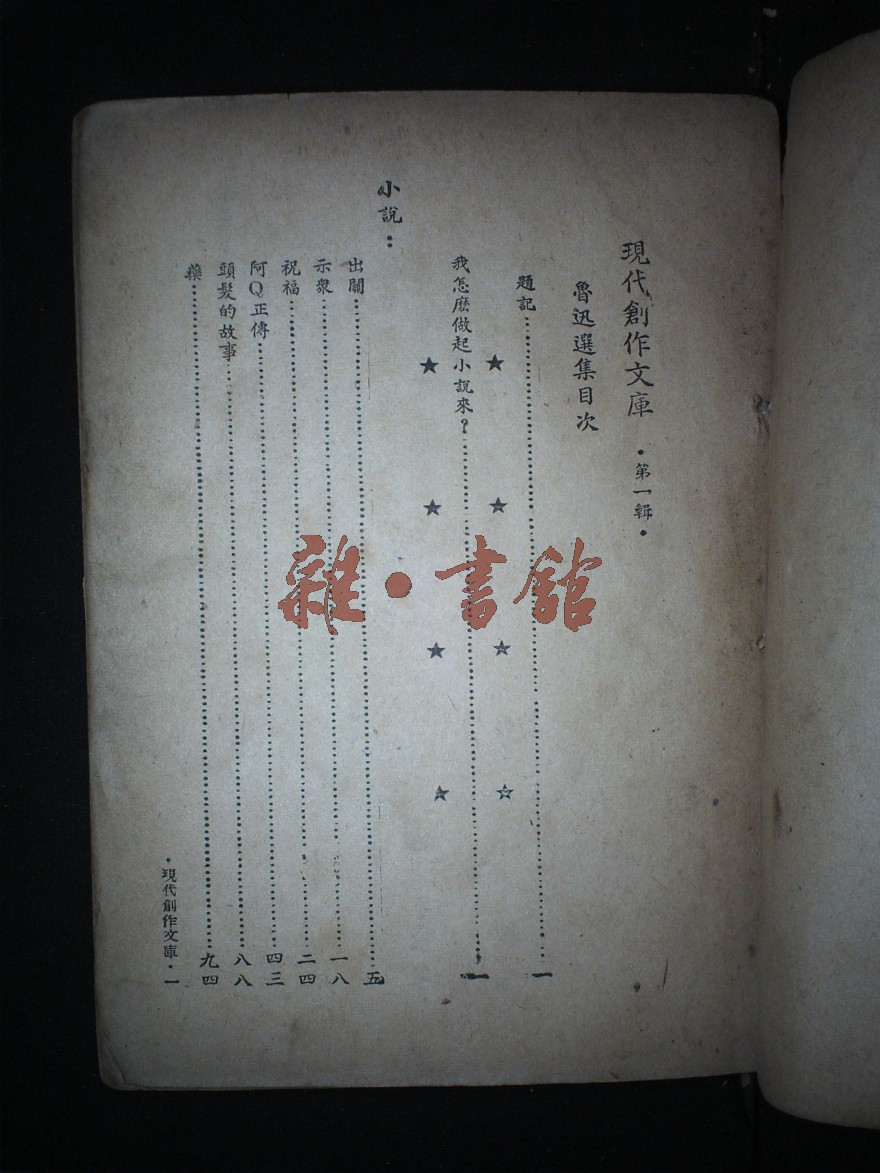 現代創作文庫 ·第一輯·
魯迅選集目次
題記……一
★ ★ ★ ★
我怎麼做起小說來？……一
★ ★ ★ ★
小說：
出關……五
示衆……一八
祝福……二四
阿Q正傳……四三
頭髮的故事……八八
藥……九四
·現代創作文庫·一
雜·書館